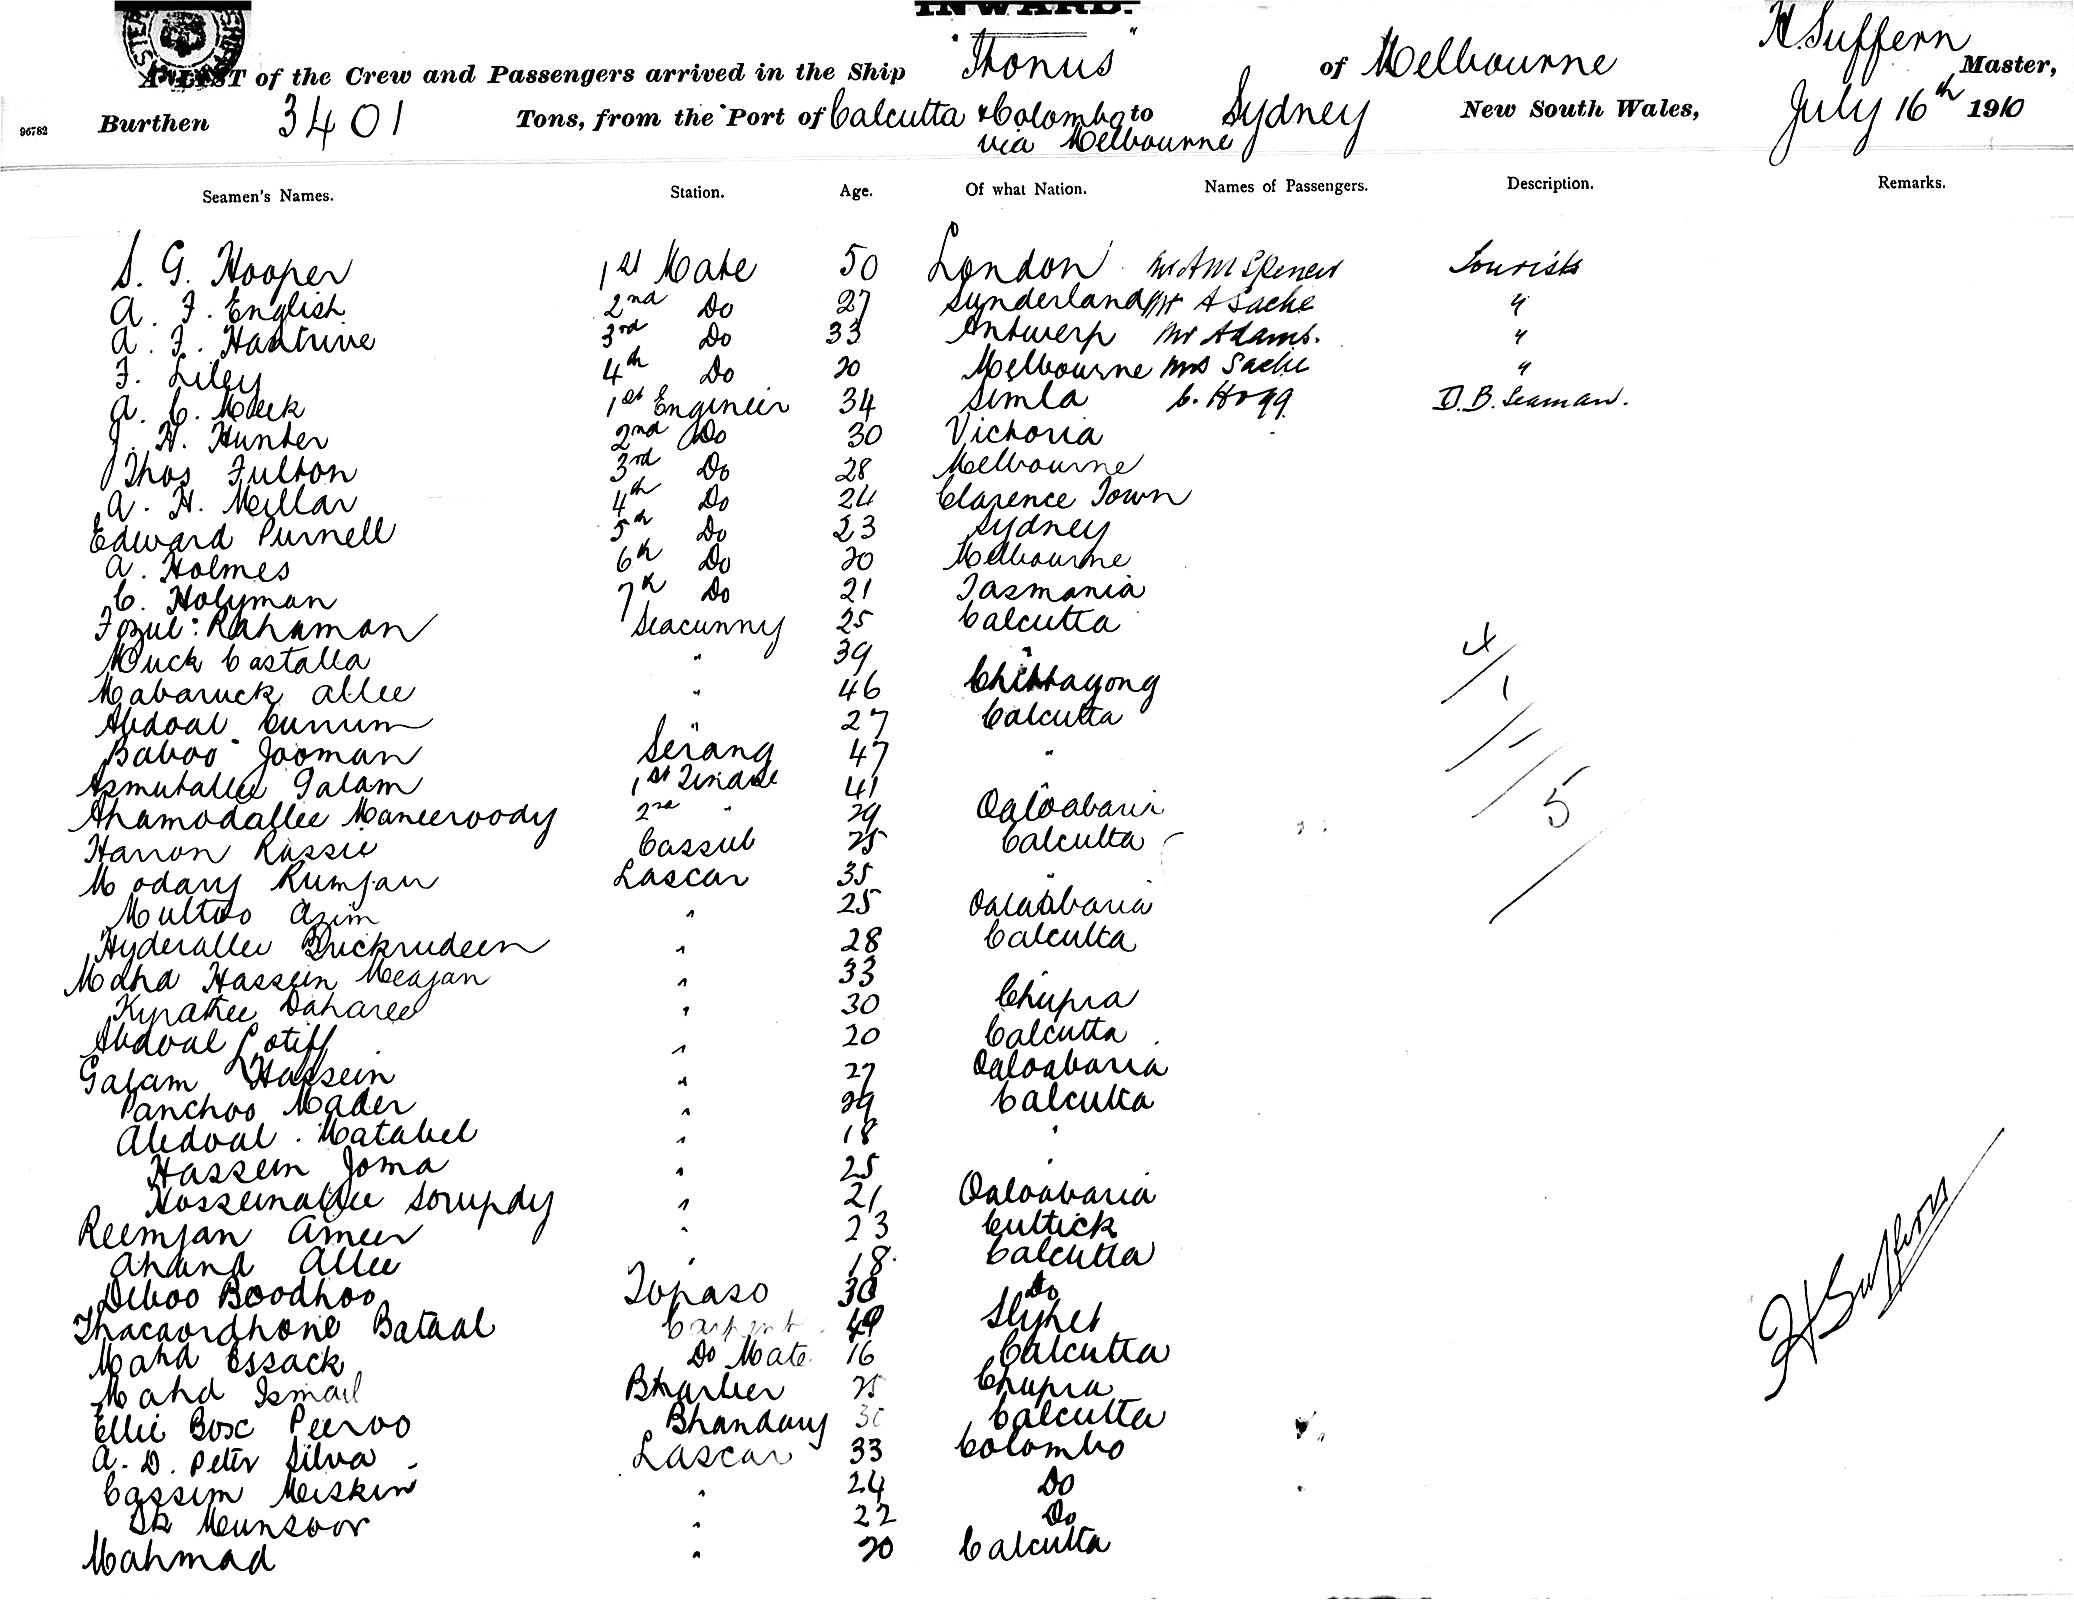 INWARD.
A LIST of the Crew and Passengers arrived in the Ship "Thonus" of Melbourne H. Suffern Master,
96782 Burthen 3401 Tons, from the Port of Calcutta & Colombo to Sydney New South Wales, July 16th 1910
via Melbourne
Seamen's Names. Station. Age. Of what Nation. Names of Passengers. Description. Remarks.
S. G. Hooper 1st Mate 50 London Mr A M Spencer Tourists
A. F. English 2nd Do 27 Sunderland Mr A Sache "
A. F. Hautrive 3rd Do 33 Antwerp Mr Adams. "
F. Liley 4th Do 20 Melbourne Mrs Sache "
A. C. Meek 1st Engineer 34 Simla C. Hogg. D.B. Seaman.
J. H. Hunter 2nd Do 30 Victoria
Thos Fulton 3rd Do 28 Melbourne
A. H. Millar 4th Do 24 Clarence Town
Edward Purnell 5th Do 23 Sydney
A. Holmes 6th Do 20 Melbourne
C. Holyman 7th Do 21 Tasmania
Fozul Rahaman Seacunny 25 Calcutta
Muck Castalla " 39 "
Mabaruck Allee " 46 Chittagong
Abdoal Currim " 27 Calcutta
Baboo Jooman Serang 47 "
Asmutallee Golam 1st Tindal 41 "
Ahamodallee Maneeroody 2nd " 29 Oaloabaria
Harron Rossie Cassub 25 Calcutta
Modary Rumjan Lascar 35 "
Multoo Azim " 25 Oaloabaria
Hyderallee Buckrudeen " 28 Calcutta
Mahd Hassein Meajan " 33 "
Kyrattee Daharee " 30 Chupra
Abdoal Lotiff " 20 Calcutta
Golam Hassein " 27 Oaloabaria
Panchoo Mader " 29 Calcutta
Abdoal Matabel " 18 "
Hassein Joma " 25 "
Hosseinallee Sorupdy " 21 Oaloabaria
Reemjan Ameer " 23 Cuttick
Ahand Allee " 18 Calcutta
Deboo Boodhoo Topaso 30 Do
Thacaordhone Bataal Carpent 49 Slyhet
Mahd Essack Do Mate 16 Calcutta
Mahd Ismail Bharber 25 Chupra
Ellie Bosc Peeroo Bhandary 30 Calcutta
A. D. Peter Silva Lascar 33 Colombo
Cassim Miskin " 24 Do
Sk Munsoor " 22 Do
Mahmad " 20 Calcutta
4/1
/-/5
H Suffern